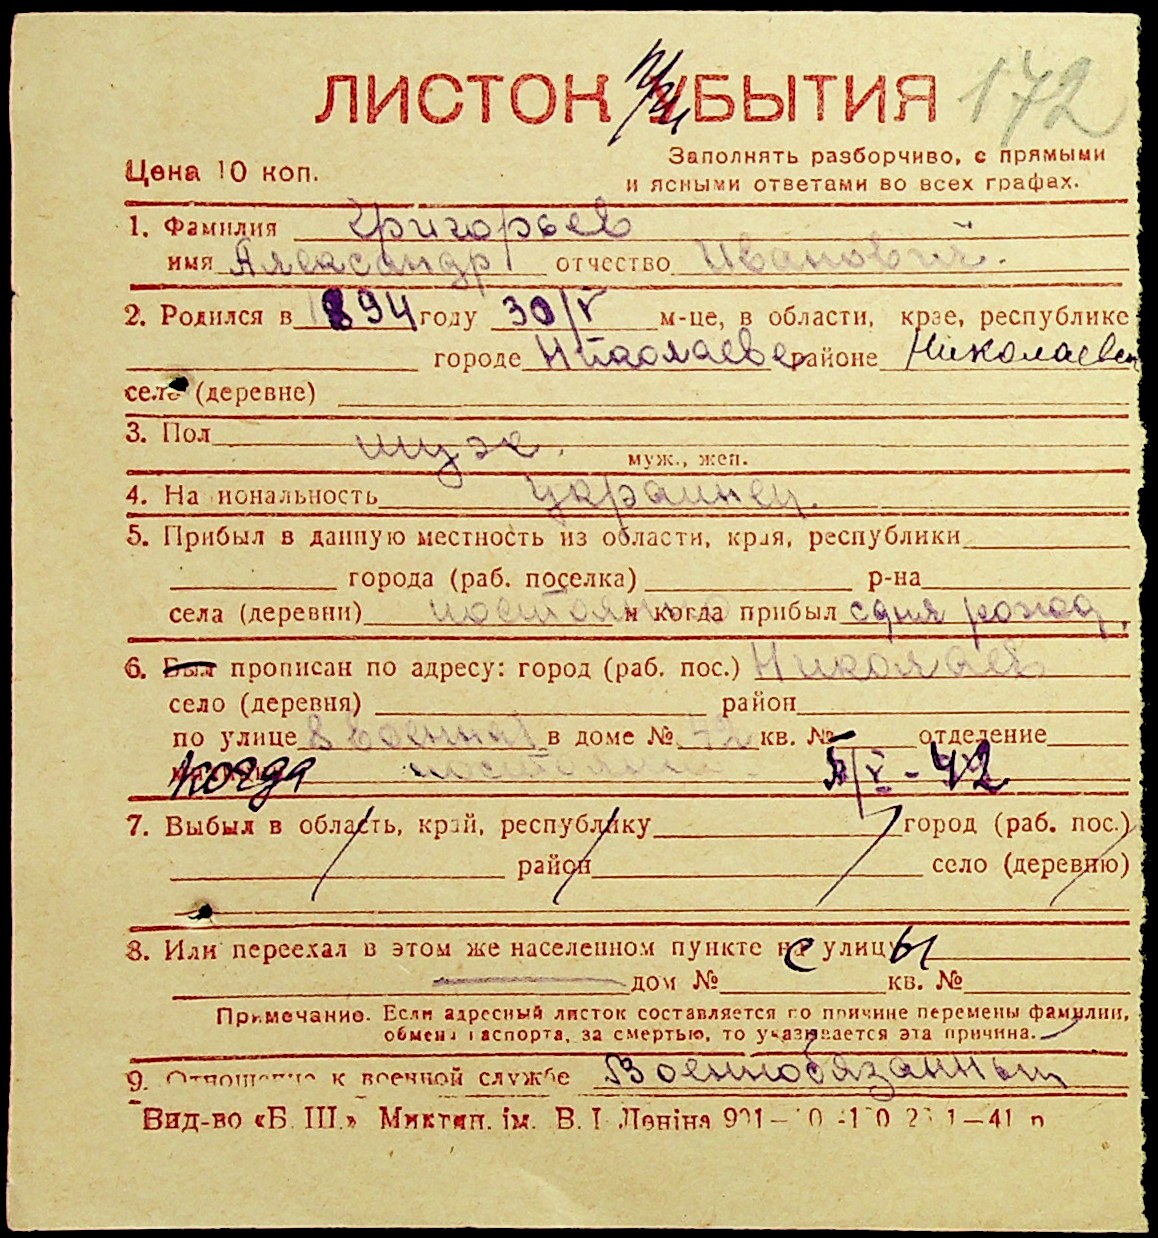 ЛИСТОК при УБЫТИЯ 172
Цена 10 коп. Заполнять разборчиво, с прямыми
и ясными ответами во всех графах.
1. Фамилия Григорьев
имя Александр отчество Иванович.
2. Родился в 1894 году 30/V м-це, в области, крае, республике
городе Николаеве районе Николаевск
село (деревне)
3. Пол муж.
муж., жен.
4. Национальность Украинец.
5. Прибыл в данную местность из области, края, республики
города (раб. поселка) р-на
села (деревни) постоянно и когда прибыл с дня рожд.
6. Был прописан по адресу: город (раб. пос.) Николаев
село (деревня) район
по улице 8 Военная в доме № 42 кв. № отделение
когда постоянно. /V-42
7. Выбыл в область, край, республику город (раб. пос.)
район село (деревню)
8. Или переехал в этом же населенном пункте с улицы
дом № кв. №
Примечание. Если адресный листок составляется по причине перемены фамилии,
обмена паспорта, за смертью, то указывается эта причина.
9. Отношение к военной службе Военнообязанный
Вид-во «Б. Ш.» Миктип. ім. В. І. Леніна